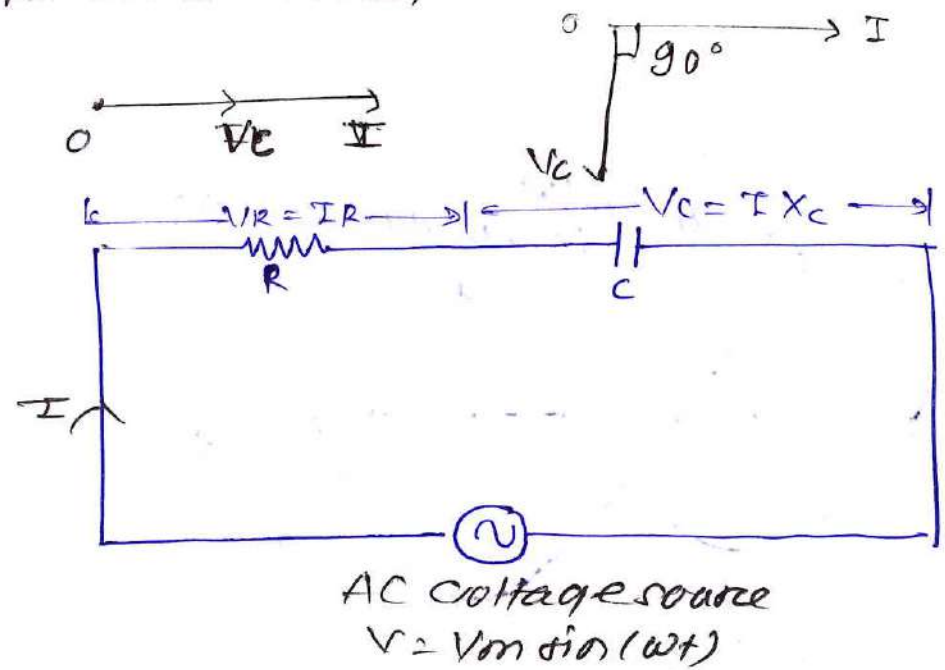 O I
90°
O VC I
VC
VR = IR VC = I XC
R C
I
AC Voltage source
V = Vm sin (ωt)